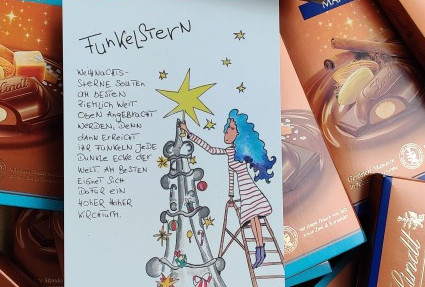 FUNKELSTERN
WEIHNACHTS-
STERNE SOLLTEN
AM BESTEN
ZIEMLICH WEIT
OBEN ANGEBRACHT
WERDEN, DENN
DANN ERREICHT
IHR FUNKELN JEDE
DUNKLE ECKE DER
WELT. AM BESTEN
EIGNET SICH
DAFÜR EIN
HOHER HOHER
KIRCHTURM.
Lindt